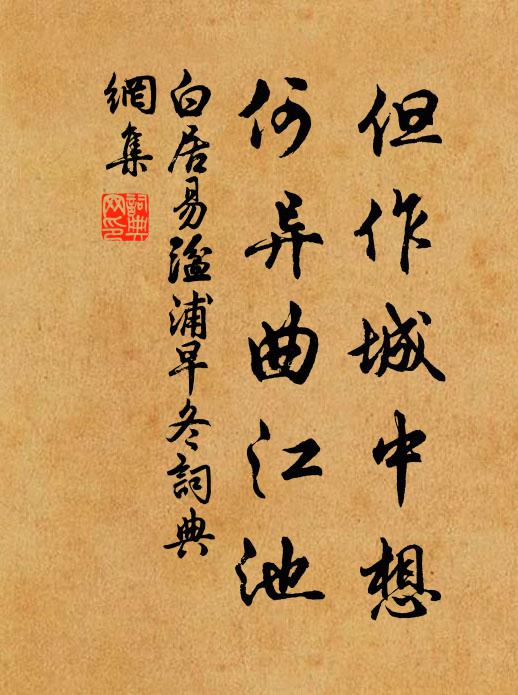 但作城中想
何异曲江池
白居易湓浦早冬詞典
網集
詞典
网印